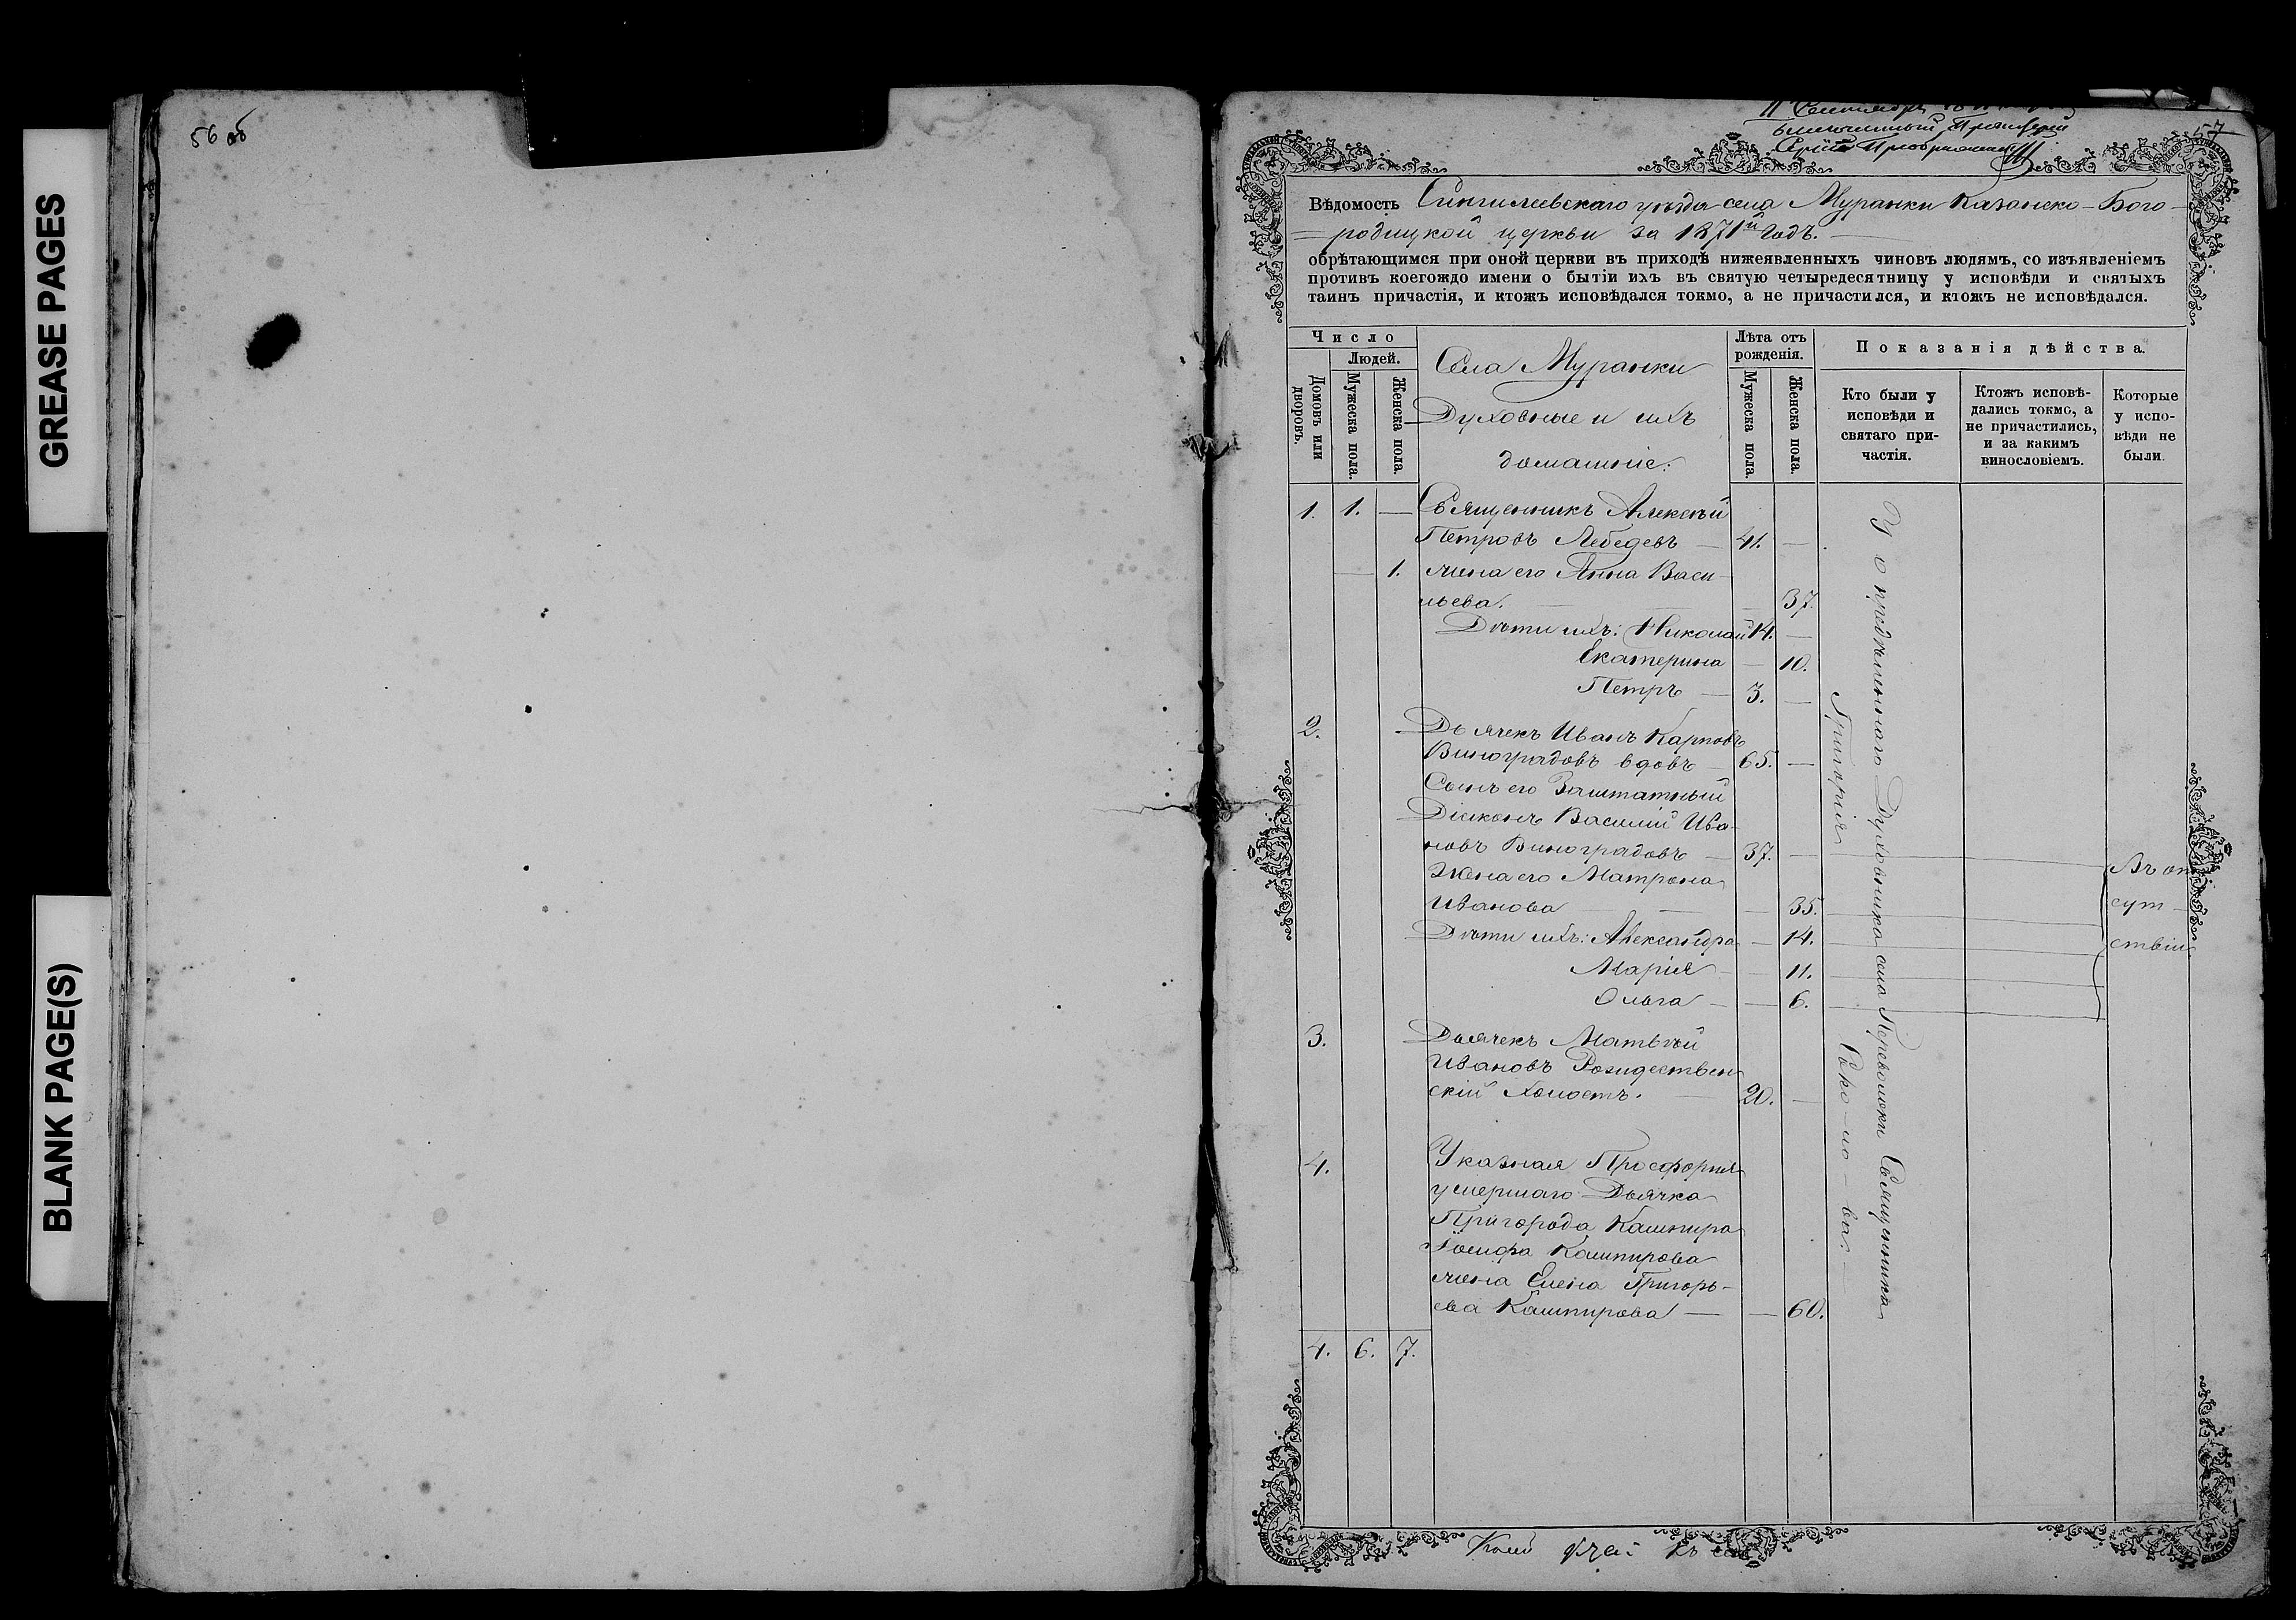 GREASE PAGES
BLANK PAGE(S)
56 об
57
Сентября
Протоіерей
Сергій Преображенскій
Вѣдомость Сингилеевскаго уѣзда села Муранки Казанско-Бого-
родицкой церкви за 1871й Годъ.
обрѣтающимся при оной церкви въ приходѣ нижеявленныхъ чиновъ людямъ, со изъявленіемъ
противъ коегождо имени о бытіи ихъ въ святую четыредесятницу у исповѣди и святыхъ
таинъ причастія, и ктожъ исповѣдался токмо, а не причастился, и ктожъ не исповѣдался.
Число
Людей.
Домовъ или дворовъ.
Мужеска пола.
Женска пола.
Села Муранки
Духовные и ихъ
домашніе:
Лѣта отъ рожденія.
Мужеска пола
Женска пола.
Показанія дѣйства.
Кто были у исповѣди и святаго причастія.
Ктожъ исповѣдались токмо, а не причастились, и за какимъ винословіемъ.
Которые у исповѣди не были.
1. 1. — Священникъ Алексѣй
Петровъ Лебедевъ — 41. —
— 1. жена его Анна Васи-
льева. — 37.
Дѣти ихъ: Николай 14. —
Екатерина — 10.
Петръ — 3. —
2. Дьячекъ Иванъ Карповъ
Виноградовъ вдовъ — 65. —
Сынъ его Заштатный
Діаконъ Василій Ива-
новъ Виноградовъ — 37. —
Жена его Матрона
Иванова — 35.
Дѣти ихъ: Александра — 14.
Марія — 11.
Ольга — 6.
Въ от
сут-
ствіи
3. Дьячекъ Матвѣй
Ивановъ Рождествен
скій Холостъ. — 20. —
4. Указная Просфорня
умершаго Дьячка
Пригорода Кашпира
Іосифа Кашпирова
жена Елена Григорь-
ева Кашпирова — — 60.
4. 6. 7.
У опредѣленнаго Духовника села Переволоки Священника
Григорія